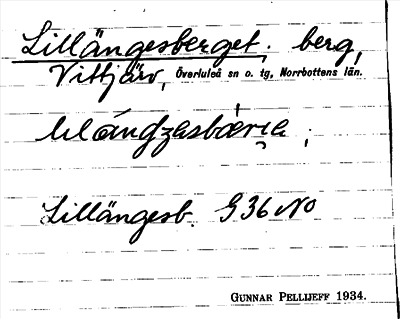 Lillängesberget, berg,
Vittjärv, Överluleå sn o. tg, Norrbottens län.
Lillängesb. G 36 NO
GUNNAR PELLIJEFF 1934.